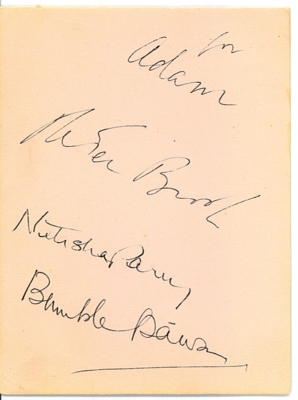 for
Adam
Peter Brook
Natasha Parry
Bumble Dawson